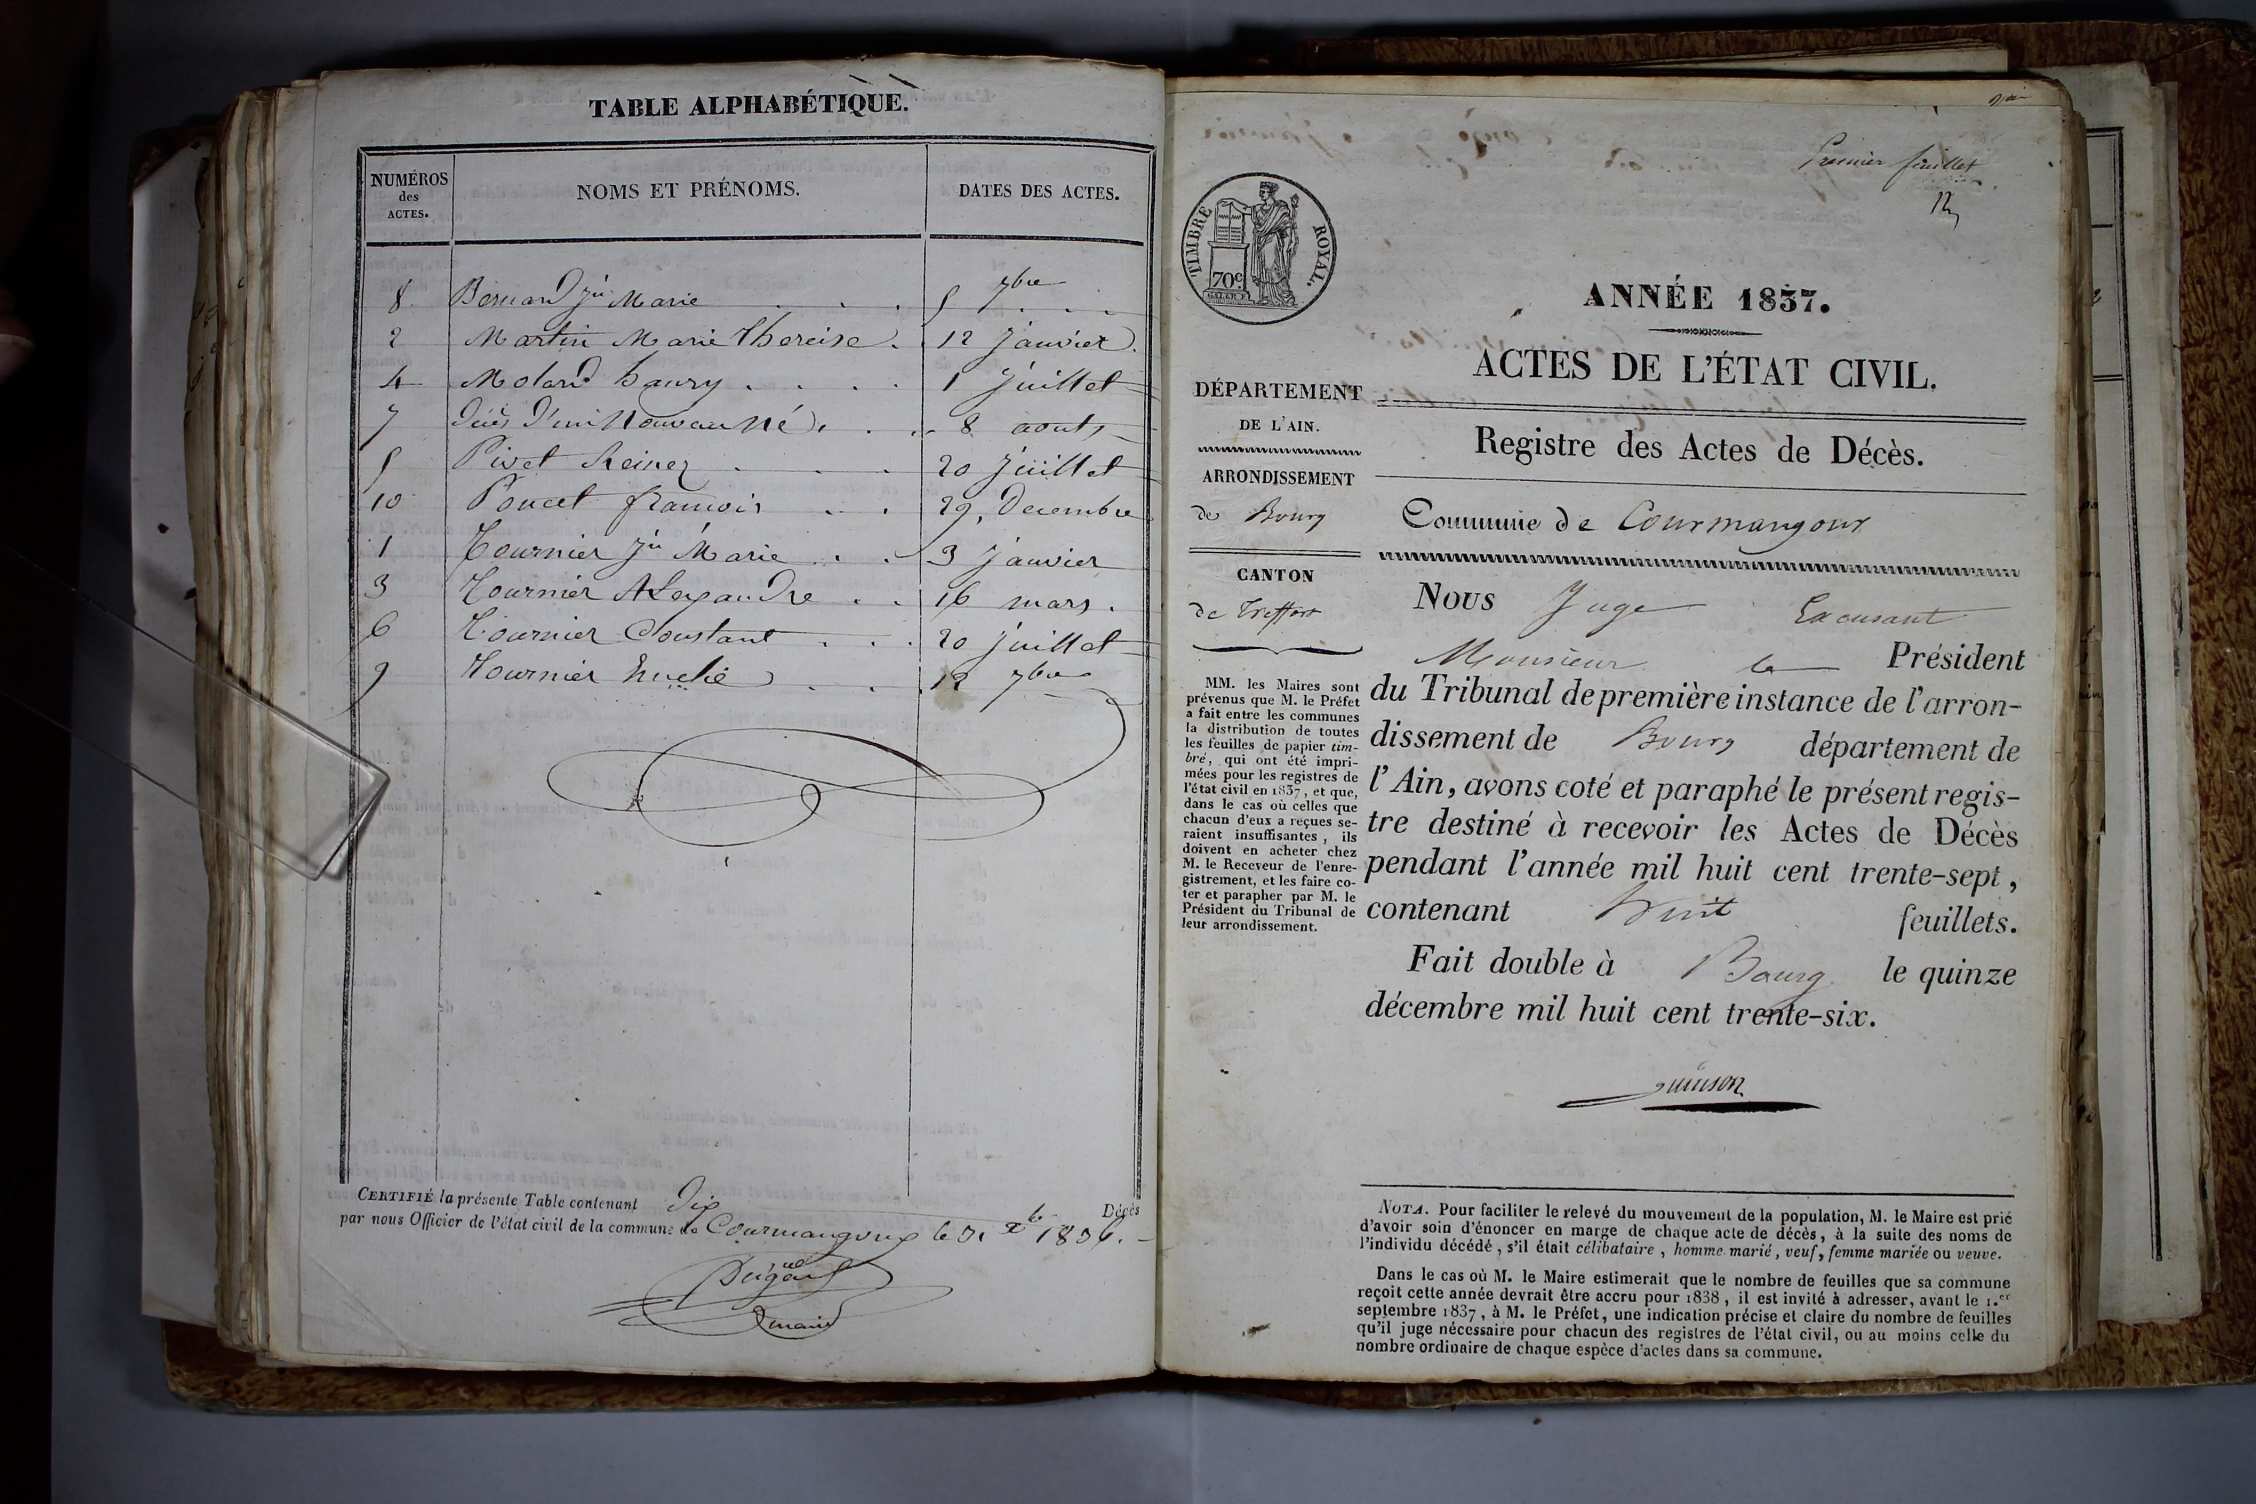 TABLE ALPHABÉTIQUE.
NUMÉROS des ACTES. NOMS ET PRÉNOMS. DATES DES ACTES.
8 Bernard Jn Marie 5 7bre
2 Martin Marie Thereise 12 janvier
4 Molard 1 Juillet
7 d'un Nouveau Né 8 aouts
5 Pivet 20 Juillet
10 Poncet francois 29, Decembre
1 Tournier Jn Marie 3 Janvier
3 Tournier Alexandre 16 mars.
6 Tournier Constant 20 Juillet
9 Tournier 12 7bre
CERTIFIÉ la présente Table contenant Dix Décès
par nous Officier de l'état civil de la commune de Courmangoux le 31 Xbre 1836.
maire
Premier feuillet
TIMBRE ROYAL.
70c
ANNÉE 1837.
ACTES DE L'ÉTAT CIVIL.
Registre des Actes de Décès.
Commune de Courmangoux
DÉPARTEMENT
DE L'AIN.
ARRONDISSEMENT
de Bourg
CANTON
de Treffort
MM. les Maires sont
prévenus que M. le Préfet
a fait entre les communes
la distribution de toutes
les feuilles de papier tim-
bré, qui ont été impri-
mées pour les registres de
l'état civil en 1837, et que,
dans le cas où celles que
chacun d'eux a reçues se-
raient insuffisantes, ils
doivent en acheter chez
M. le Receveur de l'enre-
gistrement, et les faire co-
ter et parapher par M. le
Président du Tribunal de
leur arrondissement.
Nous Juge
Monsieur le Président
du Tribunal de première instance de l'arron-
dissement de Bourg département de
l'Ain, avons coté et paraphé le présent regis-
tre destiné à recevoir les Actes de Décès
pendant l'année mil huit cent trente-sept,
contenant huit feuillets.
Fait double à Bourg le quinze
décembre mil huit cent trente-six.
NOTA. Pour faciliter le relevé du mouvement de la population, M. le Maire est prié
d'avoir soin d'énoncer en marge de chaque acte de décès, à la suite des noms de
l'individu décédé, s'il était célibataire, homme marié, veuf, femme mariée ou veuve.
Dans le cas où M. le Maire estimerait que le nombre de feuilles que sa commune
reçoit cette année devrait être accru pour 1838, il est invité à adresser, avant le 1.er
septembre 1837, à M. le Préfet, une indication précise et claire du nombre de feuilles
qu'il juge nécessaire pour chacun des registres de l'état civil, ou au moins celle du
nombre ordinaire de chaque espèce d'actes dans sa commune.